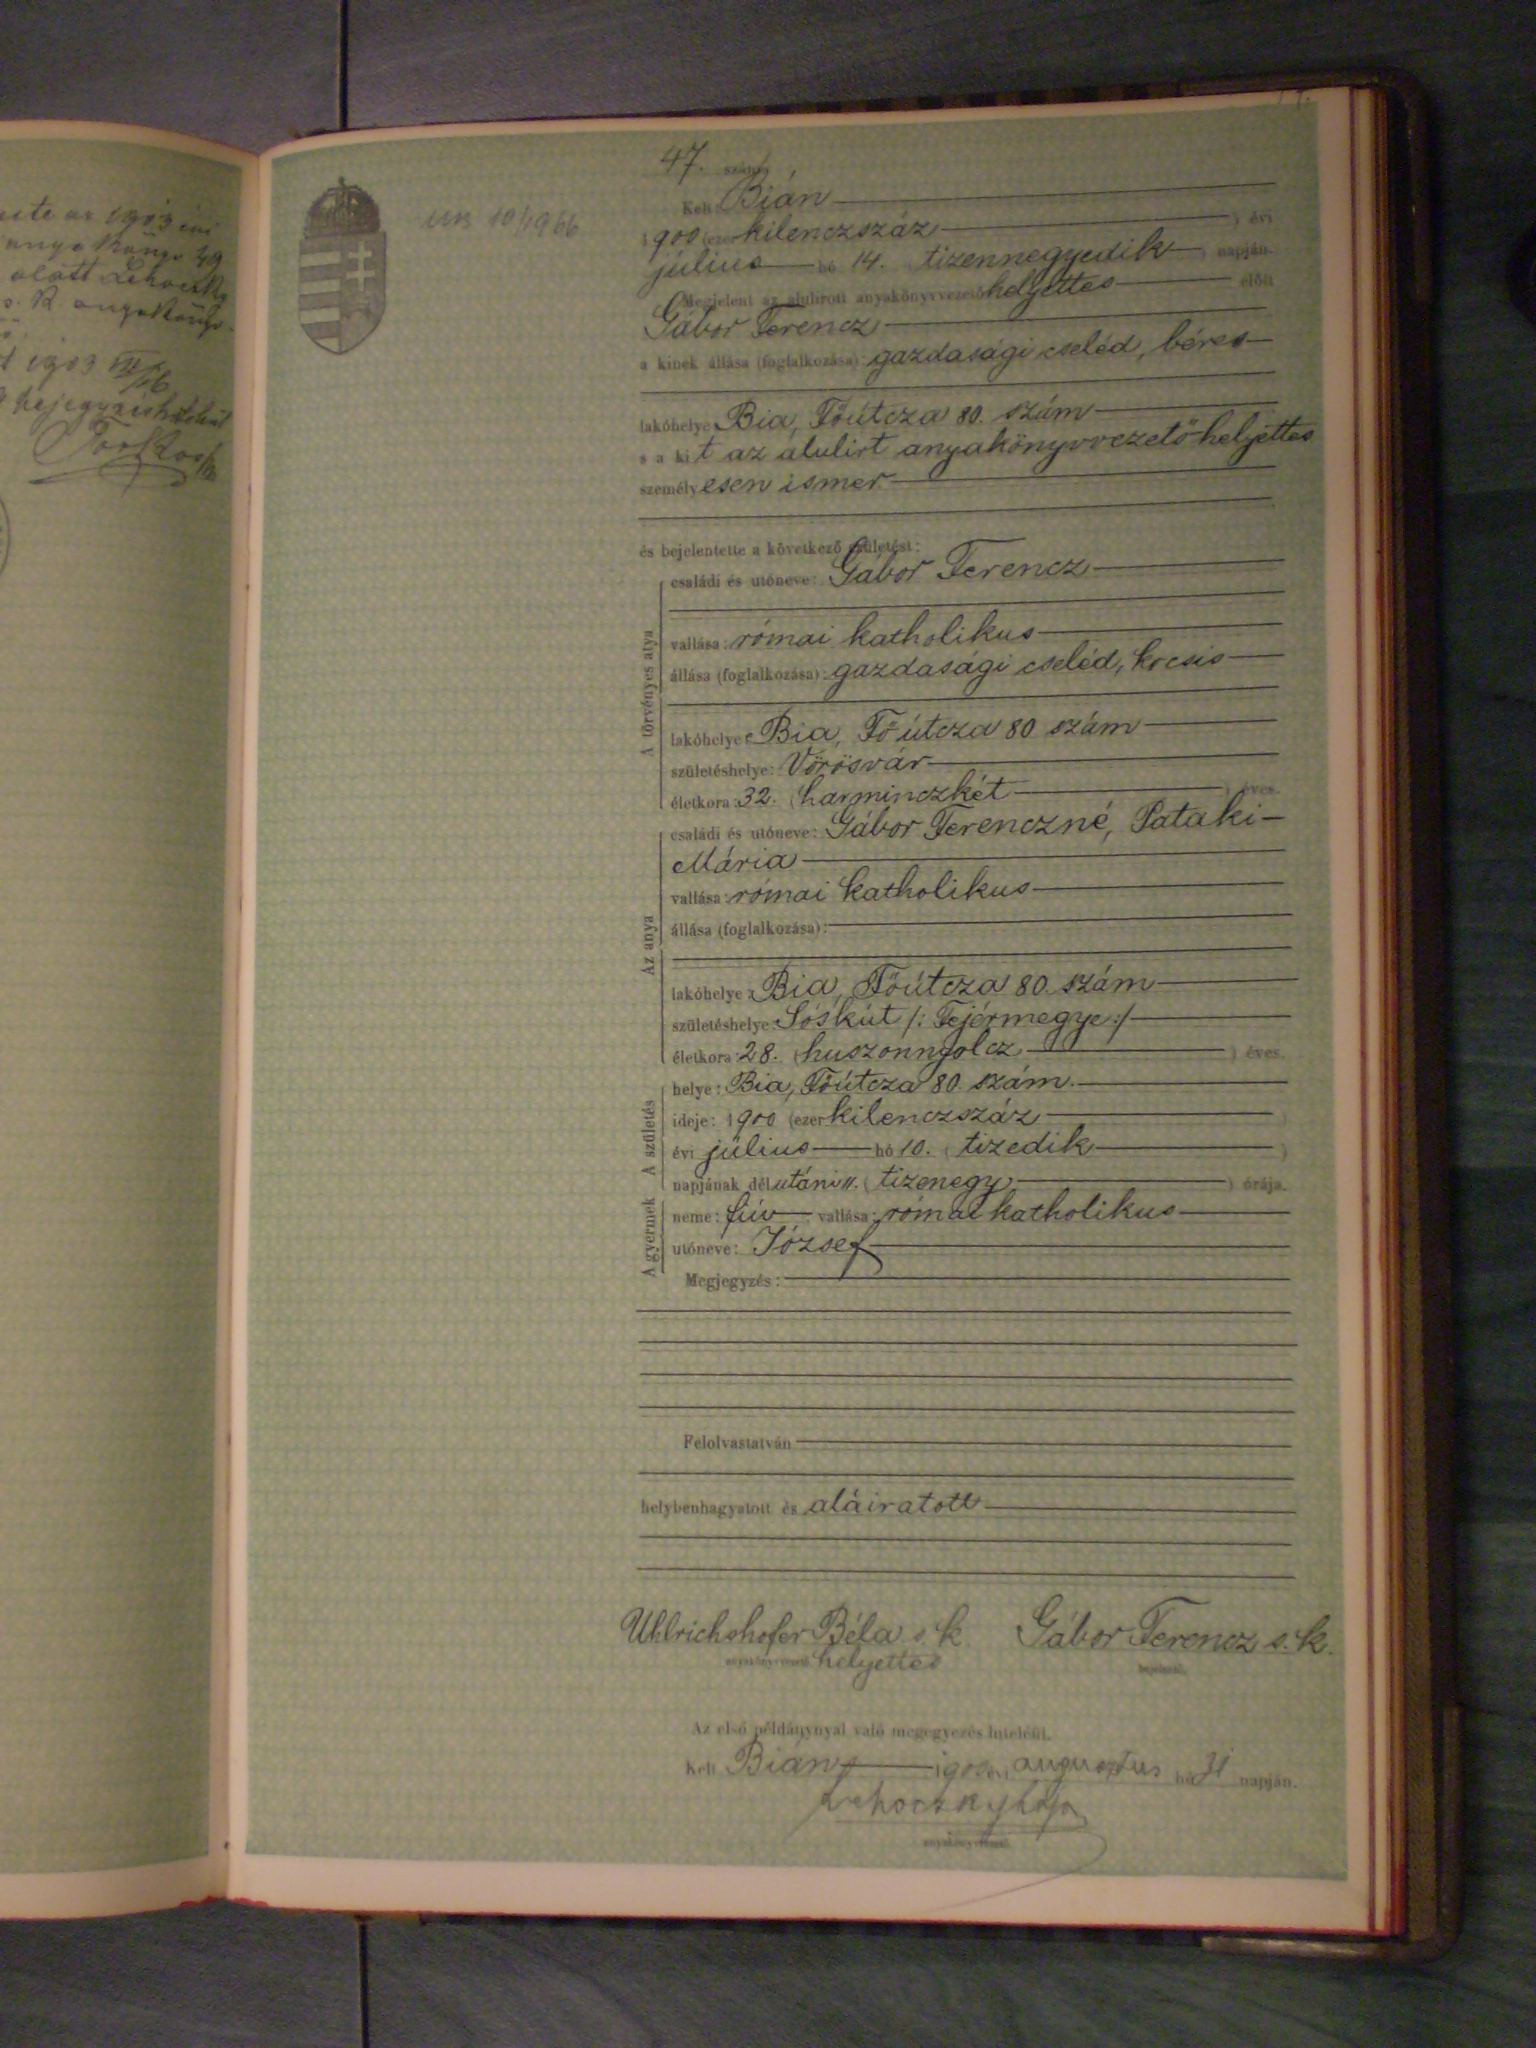 1903 évi
anyakönyv
alatt Lehoczky
s. k. anyakönyv-
1903
47. szám.
UBS 10/1966
Kelt Bián
1900 (ezerkilenczszáz) évi
július hó 14. (tizennegyedik) napján.
Megjelent az alulirott anyakönyvvezető helyettes előtt
Gábor Ferencz
a kinek állása (foglalkozása): gazdasági cseléd, béres
lakóhelye: Bia, Főútcza 80. szám
s a kit az alulirt anyakönyvvezető-helyettes
személyesen ismer
és bejelentette a következő születést:
A törvényes atya
családi és utóneve: Gábor Ferencz
vallása: római katholikus
állása (foglalkozása): gazdasági cseléd, kocsis
lakóhelye: Bia, Fő útcza 80 szám
születéshelye: Vörösvár
életkora: 32. (harminczkét) éves.
Az anya
családi és utóneve: Gábor Ferenczné, Pataki
Mária
vallása: római katholikus
állása (foglalkozása):
lakóhelye: Bia, Főútcza 80. szám
születéshelye: Sóskút /: Fejérmegye :/
életkora: 28. (huszonnyolcz) éves.
A születés
helye: Bia, Főútcza 80. szám.
ideje: 1900 (ezerkilenczszáz
évi július hó 10. (tizedik)
napjának délutáni 11. (tizenegy) órája.
A gyermek
neme: fiú vallása: római katholikus
utóneve: József
Megjegyzés:
Felolvastatván
helybenhagyatott és aláiratott
Uhlrichshofer Béla s. k. Gábor Ferencz s. k.
anyakönyvvezető helyettes bejelentő.
Az első példánynyal való megegyezés hiteléül.
Kelt Bián 1900 évi augusztus hó 31 napján.
Lehoczky Lajos
anyakönyvvezető.